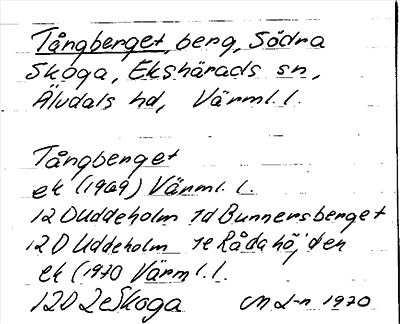 Tångberget, berg, Södra
Skoga, Ekshärads sn,
Älvdals hd, Värml. l.
Tångberget
ek (1969) Värml. l.
12D Uddeholm 1d Bunnersberget
12D Uddeholm 1e Rådahöjden
ek (1970 Värml. l.
12D 2e Skoga CML-n 1970